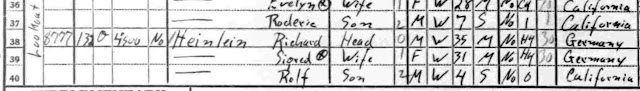 36 Evelyn Wife 1 F W 28 M No California
37 Roderic Son 2 M W 7 S No 1 California
38 8777 132 4500 No Heinlein Richard Head 0 M W 35 M No H4 30 Germany
39 Wife 1 F W 31 M No H4 30 Germany
40 Rolf Son 2 M W 4 S No 0 California